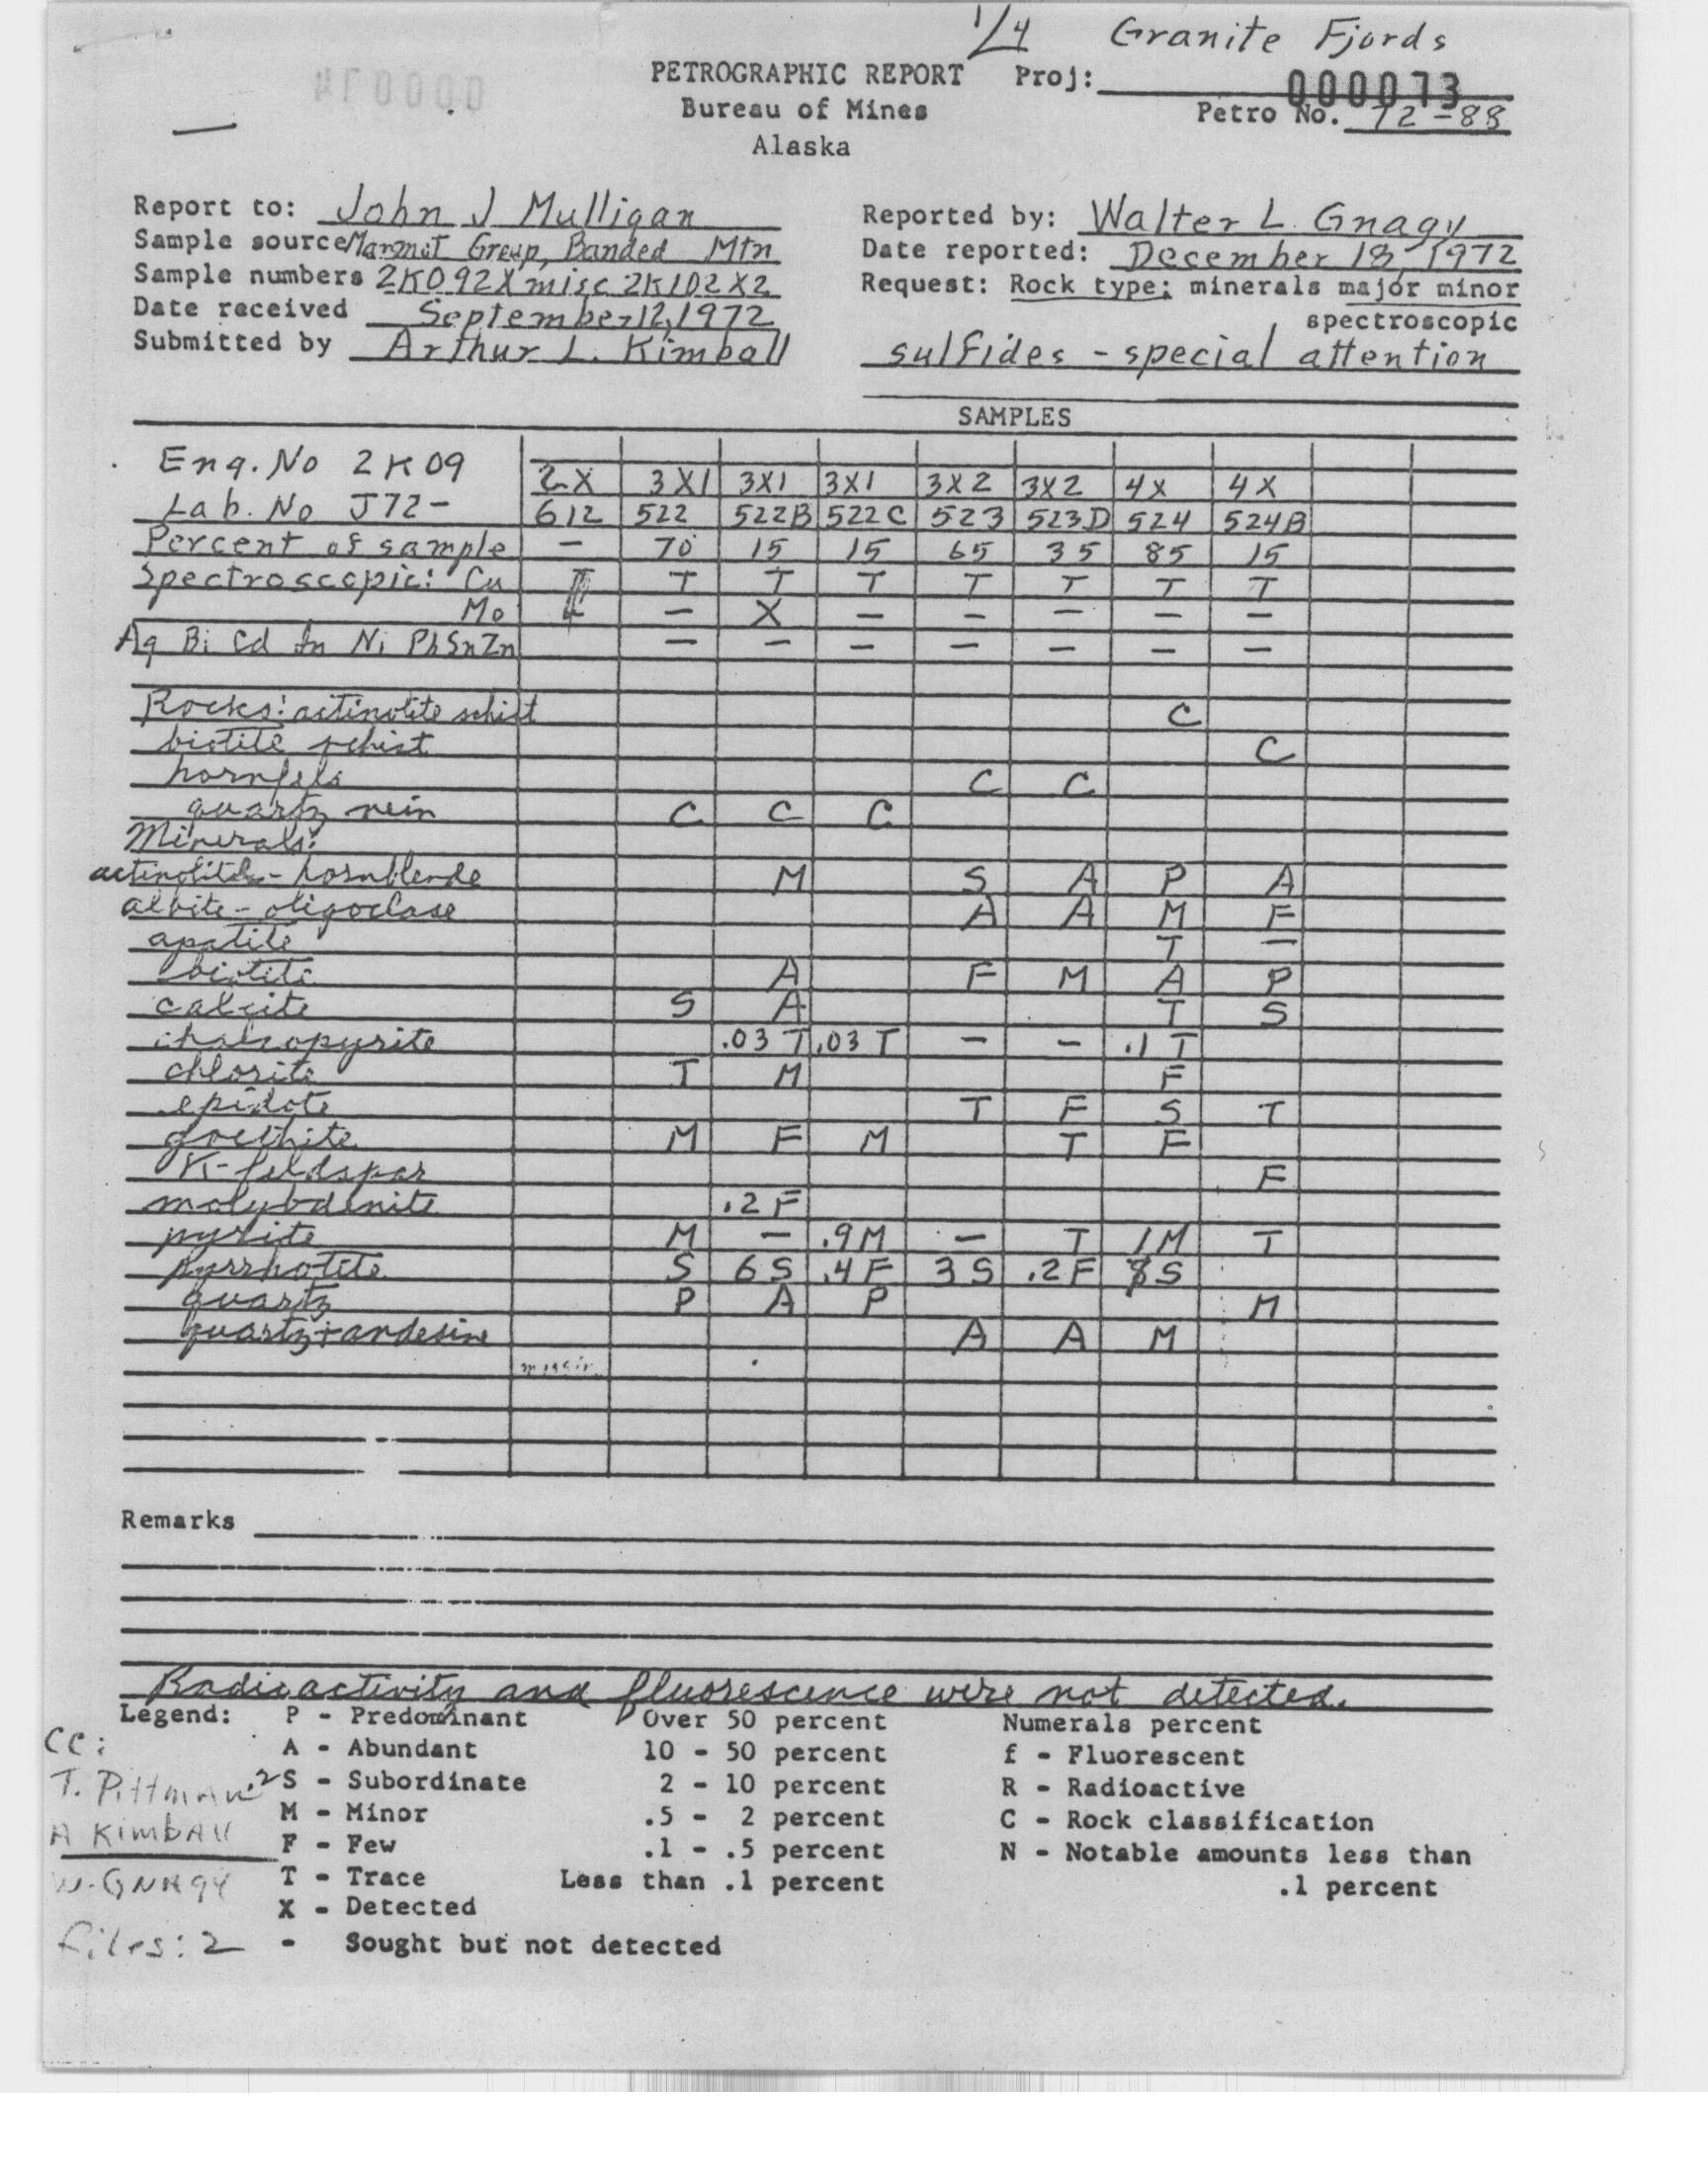 1/4 Granite Fjords
PETROGRAPHIC REPORT Proj:
000073
Bureau of Mines Petro No. 72-88
Alaska
Report to: John J Mulligan Reported by: Walter L. Gnagy
Sample source Marmot Group, Banded Mtn Date reported: December 18, 1972
Sample numbers 2K092X misc 2K102X2 Request: Rock type; minerals major minor
Date received September 12, 1972 spectroscopic
Submitted by Arthur L. Kimball sulfides - special attention
SAMPLES
Eng. No 2K09 2X 3X1 3X1 3X1 3X2 3X2 4X 4X
Lab. No J72- 612 522 522B 522C 523 523D 524 524B
Percent of sample - 70 15 15 65 35 85 15
Spectroscopic: Cu T T T T T T T
Mo - X - - - - -
Ag Bi Cd In Ni Pb Sn Zn - - - - - - -
Rocks: actinolite schist C
biotite schist C
hornfels C C
quartz vein C C C
Minerals:
actinolite - hornblende M S A P A
albite - oligoclase A A M F
apatite T -
biotite A F M A P
calcite S A T S
chalcopyrite .03 T .03 T - - .1 T
chlorite T M F
epidote T F S T
goethite M F M T F
K-feldspar F
molybdenite .2 F
pyrite M - .9M - T 1M T
pyrrhotite S 6S .4F 3S .2F 8S
quartz P A P M
quartz + andesine A A M
Remarks
Radioactivity and fluorescence were not detected.
Legend: P - Predominant Over 50 percent Numerals percent
A - Abundant 10 - 50 percent f - Fluorescent
S - Subordinate 2 - 10 percent R - Radioactive
M - Minor .5 - 2 percent C - Rock classification
F - Few .1 - .5 percent N - Notable amounts less than
T - Trace Less than .1 percent .1 percent
X - Detected
- Sought but not detected
CC:
T. Pittman, 2
A Kimball
W. GNAGY
files: 2